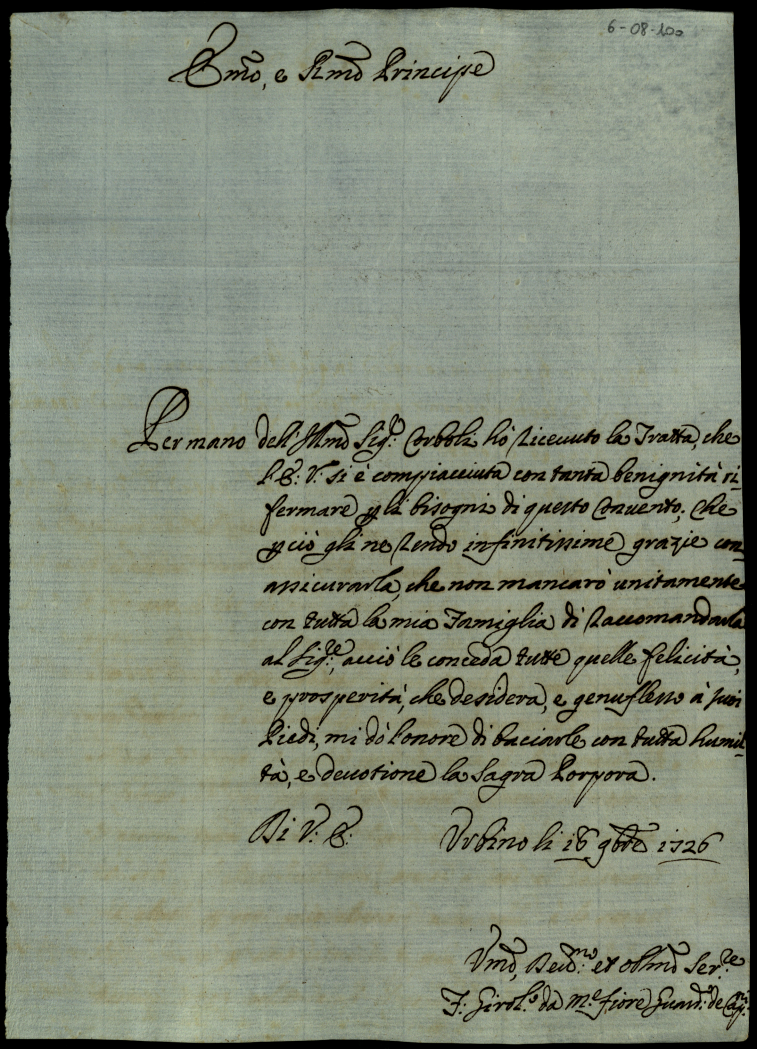 6-08-100
Emo, e Rmo Principe
Per mano dell'Illmo Sigre Corboli hò riceuuto la Tratta, che
l'E: V: si è compiacciuta con tanta benignità ri-
fermare p gli bisogni di questo Conuento; che
p ciò gli ne rendo infinitissime grazie con
assicurarla, che non mancarò unitamente
con tutta la mia Famiglia di raccomandarla
al Sigre, acciò le conceda tutte quelle felicità,
e prosperità, che desidera, e genuflesso à suoi
Piedi, mi dò l'onore di baciarle con tutta humil-
tà, e deuotione la Sagra Porpora.
Di V: E: Urbino li 16 9bre 1726
Vmo, Deumo et oblmo Serre
F: Girolo da Me fiore Guardo de Capni